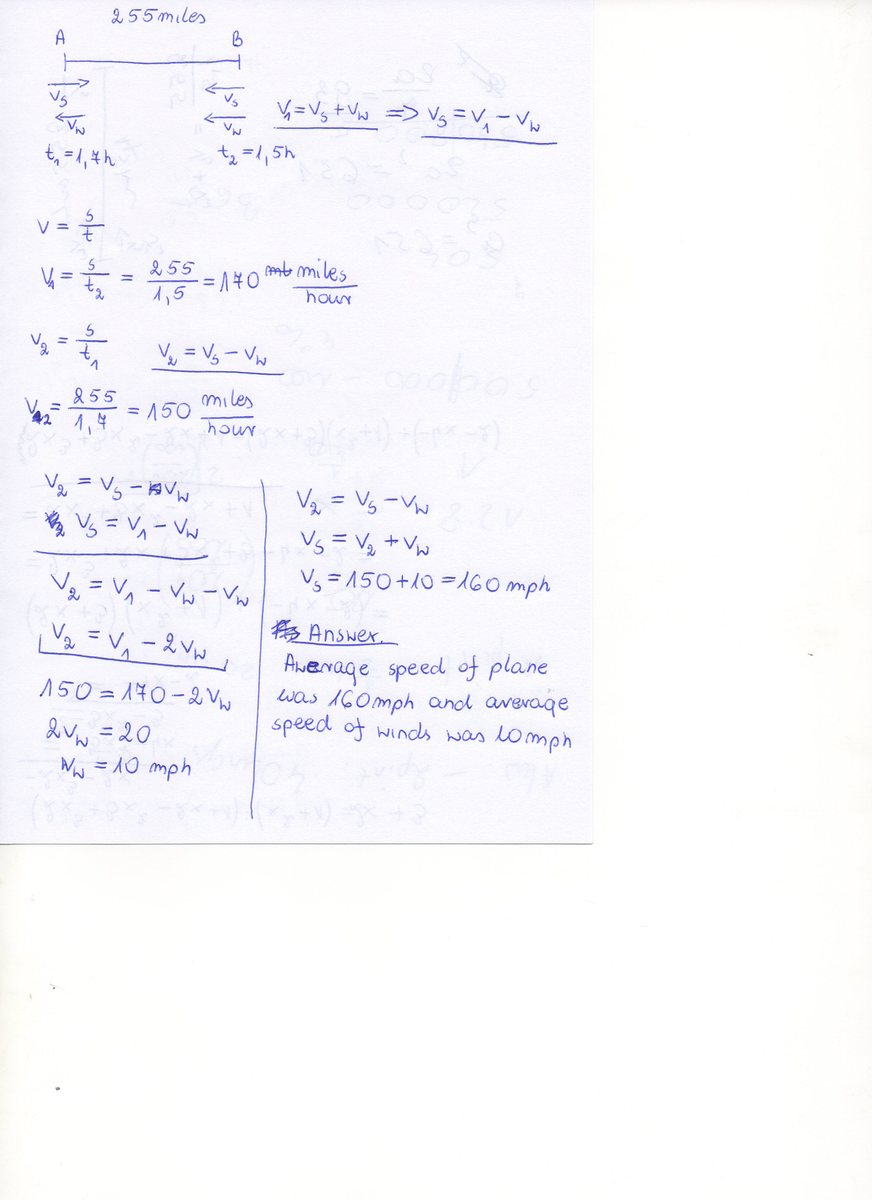 255miles
A B
Vs Vs
Vw Vw
V1 = Vs + Vw => Vs = V1 - Vw
t1 = 1,7h t2 = 1,5h
v = s/t
V1 = s/t2 = 255/1,5 = 170 miles/hour
V2 = s/t1 V2 = Vs - Vw
V2 = 255/1,7 = 150 miles/hour
V2 = Vs - Vw
Vs = V1 - Vw
V2 = V1 - Vw - Vw
V2 = V1 - 2Vw
150 = 170 - 2Vw
2Vw = 20
Vw = 10 mph
V2 = Vs - Vw
Vs = V2 + Vw
Vs = 150 + 10 = 160 mph
Answer.
Awerage speed of plane
was 160mph and average
speed of winds was 10mph